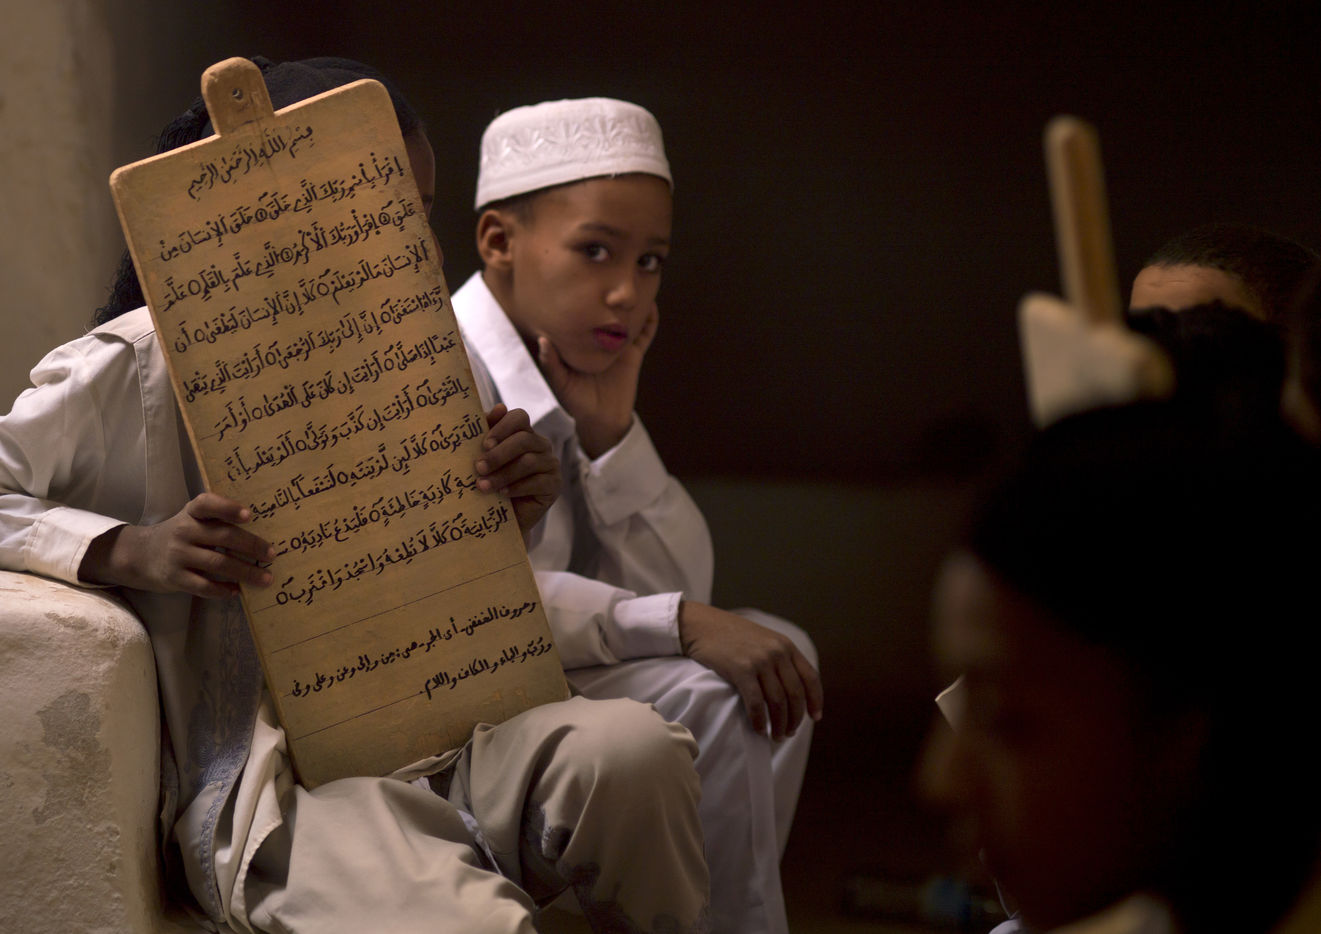 بِسْمِ اللَّهِ الرَّحْمَٰنِ الرَّحِيمِ
إِقْرَأْ بِاسْمِ رَبِّكَ الَّذِے خَلَقَ ۝ خَلَقَ الْإِنْسَانَ مِنْ
عَلَقٍ ۝ إِقْرَأْ وَرَبُّكَ الْأَكْرَمُ ۝ الَّذِے عَلَّمَ بِالْقَلَمِ ۝ عَلَّمَ
الْإِنْسَانَ مَا لَمْ يَعْلَمْ ۝ كَلَّا إِنَّ الْإِنْسَانَ لَيَطْغَىٰ ۝ أَن
رَّءَاهُ اسْتَغْنَىٰ ۝ إِنَّ إِلَىٰ رَبِّكَ الرُّجْعَىٰ ۝ أَرَأَيْتَ الَّذِے يَنْهَىٰ
عَبْدًا إِذَا صَلَّىٰ ۝ أَرَأَيْتَ إِن كَانَ عَلَى الْهُدَىٰ ۝ أَوْ أَمَرَ
بِالتَّقْوَىٰ ۝ أَرَأَيْتَ إِن كَذَّبَ وَتَوَلَّىٰ ۝ أَلَمْ يَعْلَم بِأَنَّ
اللَّهَ يَرَىٰ ۝ كَلَّا لَئِن لَّمْ يَنتَهِ ۝ لَنَسْفَعًا بِالنَّاصِيَةِ
كَاذِبَةٍ خَاطِئَةٍ ۝ فَلْيَدْعُ نَادِيَهُ ۝
الزَّبَانِيَةَ ۝ كَلَّا لَا تُطِعْهُ وَاسْجُدْ وَاقْتَرِب ۝
وحروف الخفض - أى الجر - هى: من وإلى وعن وعلى وفى
ورُبّ والباء والكاف واللام.